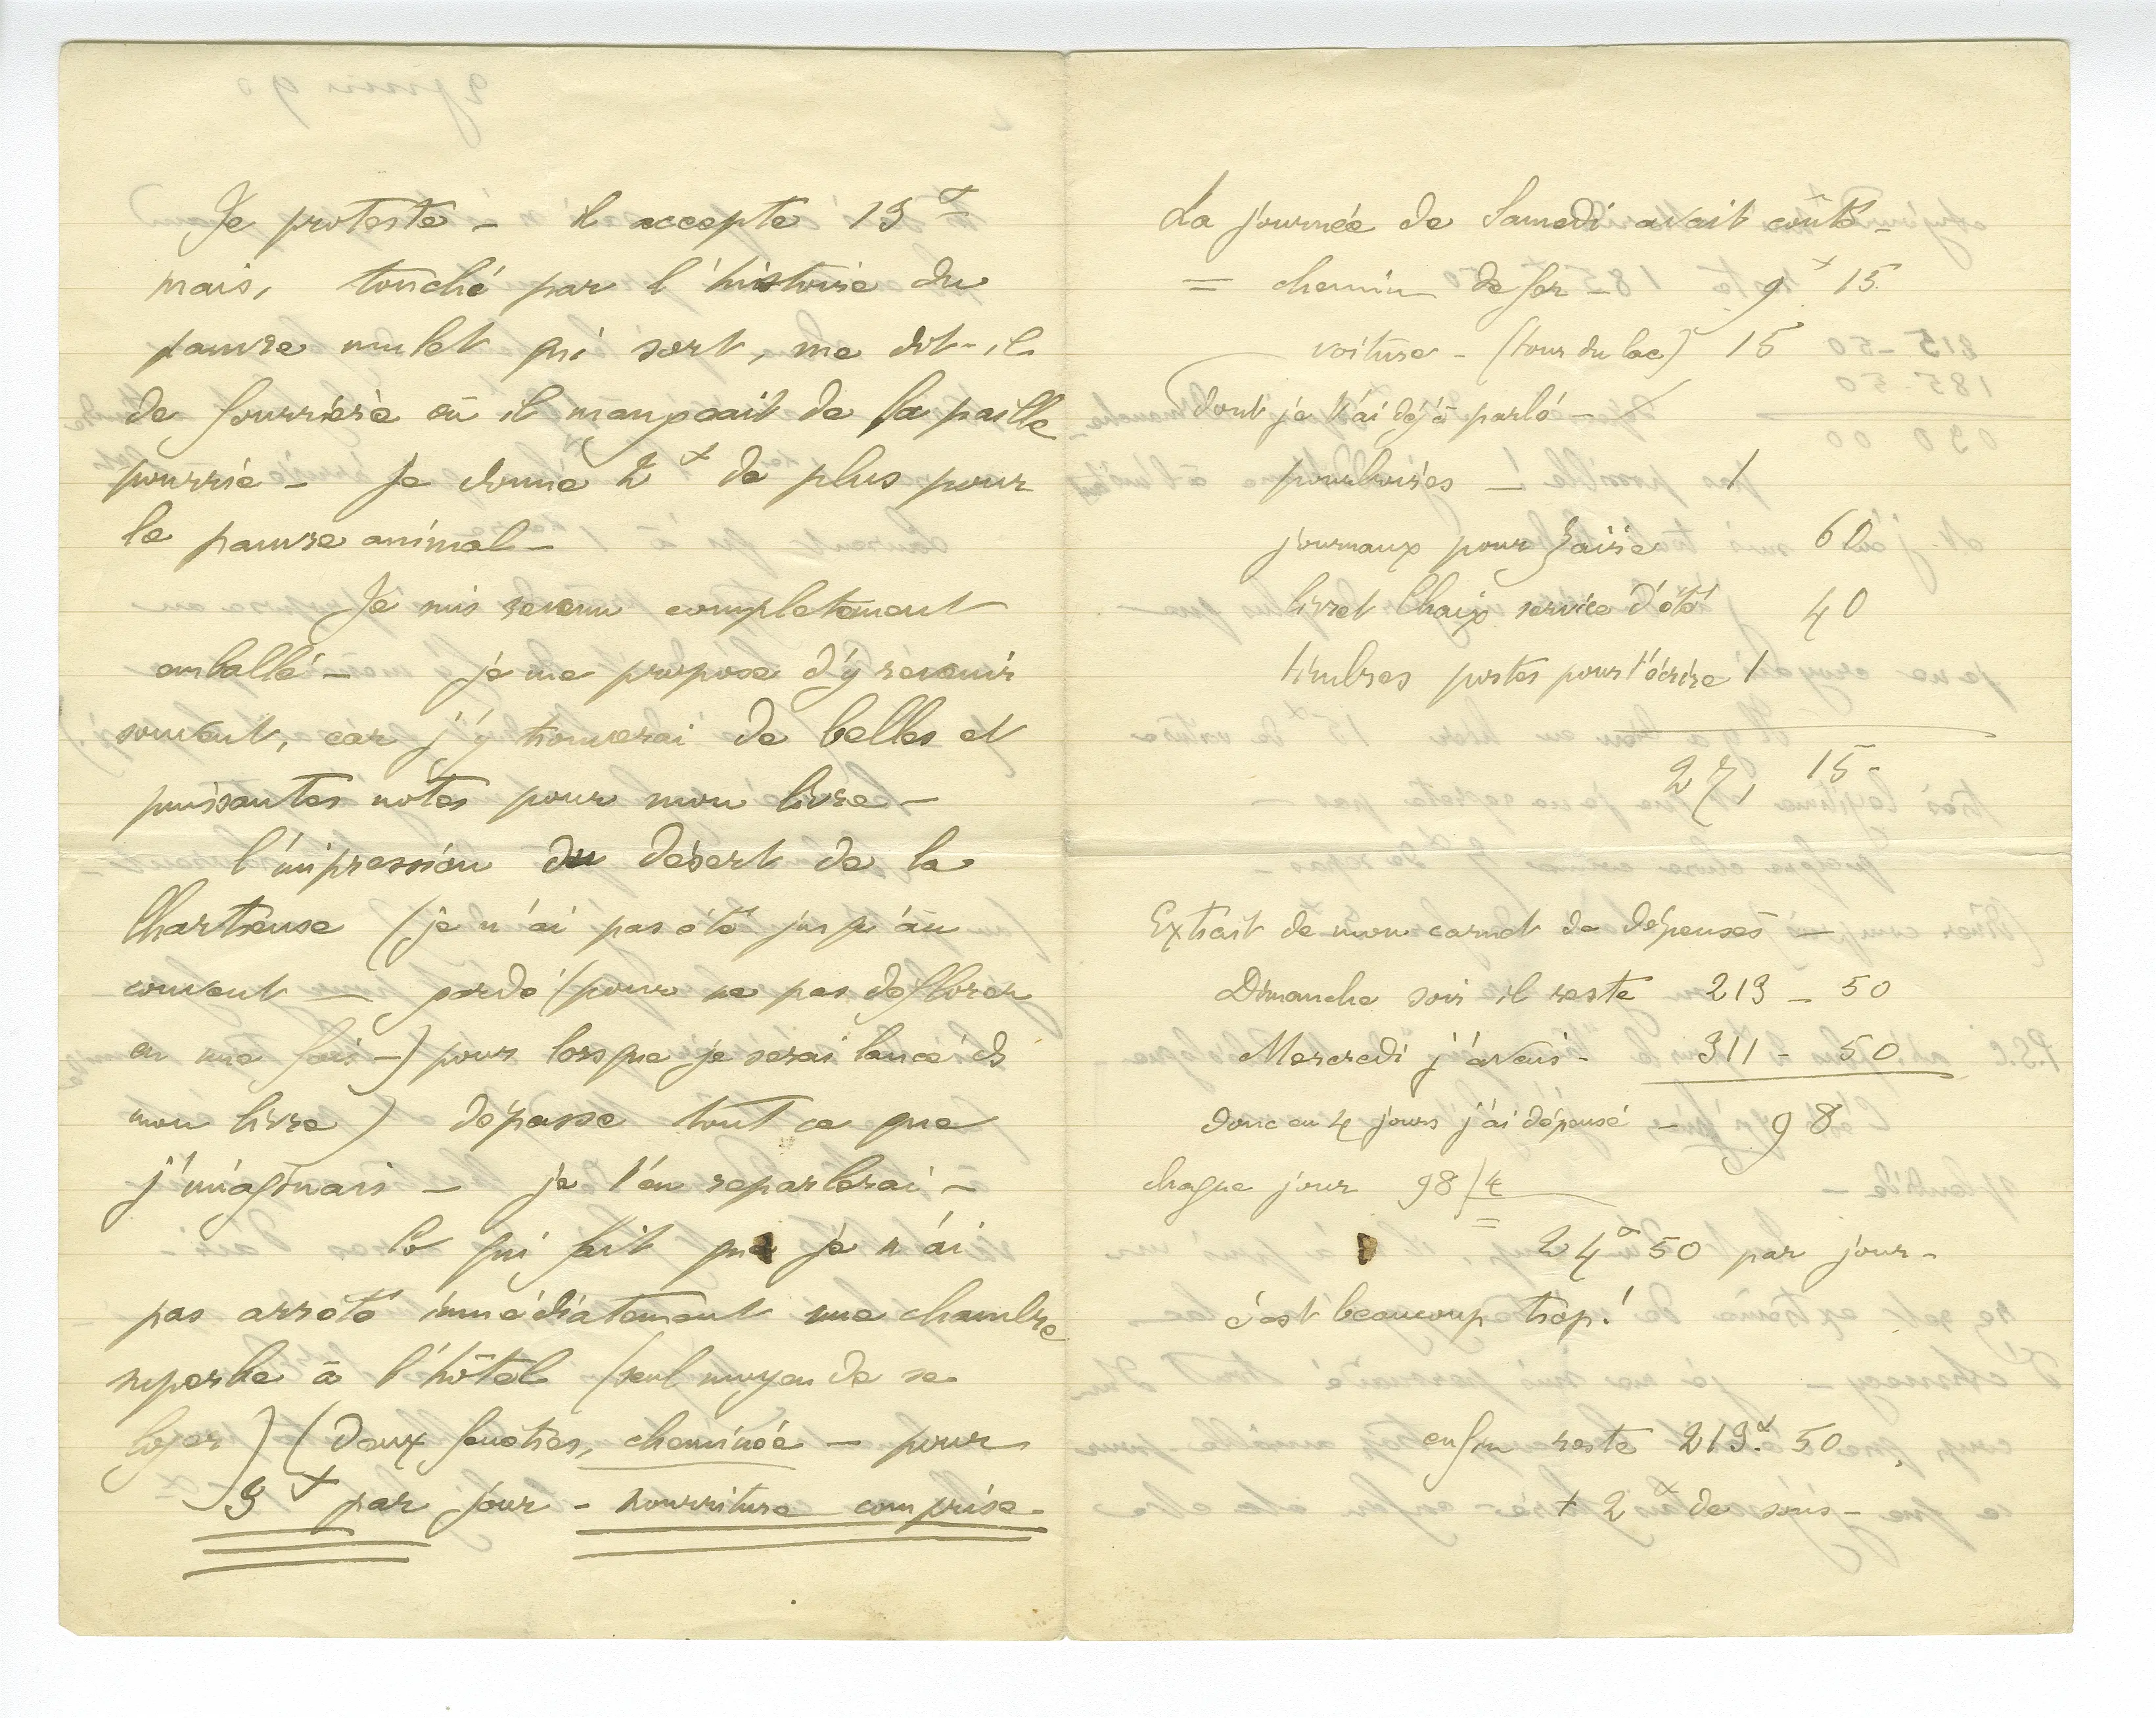 Je proteste - il accepte 13 f
mais, touché par l'histoire du
pauvre mulet qui sort, me dit-il
de fourrière où il mangeait de la paille
pourrie - Je donne 2 f de plus pour
le pauvre animal -
Je suis revenu complètement
emballé - je me propose d'y revenir
souvent, car j'y trouverai de belles et
puissantes notes pour mon livre -
l'impression du désert de la
Chartreuse (je n'ai pas été jusqu'au
couvent - gardé (pour ne pas déflorer
en une fois -) pour lorsque je serai lancé ds
mon livre) dépasse tout ce que
j'imaginais - je t'en reparlerai -
Ce qui fait que je n'ai
pas arrêté immédiatement une chambre
superbe à l'hôtel (seul moyen de se
loger) (deux fenêtres, cheminée - pour
9 f par jour - nourriture comprise -
La journée de Samedi avait coûté -
= chemin de fer - 9 f 15
voiture - (tour du lac) 15
dont je t'ai déjà parlé -
pourboires - 1
journaux pour Zaïre 60
livret Chaix service d'été 40
timbres postes pour t'écrire 1
27, 15 -
Extrait de mon carnet de dépenses -
Dimanche soir il reste 213 - 50
Mercredi j'avais - 311 - 50
donc en 4 jours j'ai dépensé - 98
chaque jour 98/4
= 24 f 50 par jour -
c'est beaucoup trop!
enfin reste 213 f. 50
+ 2 f de sous -